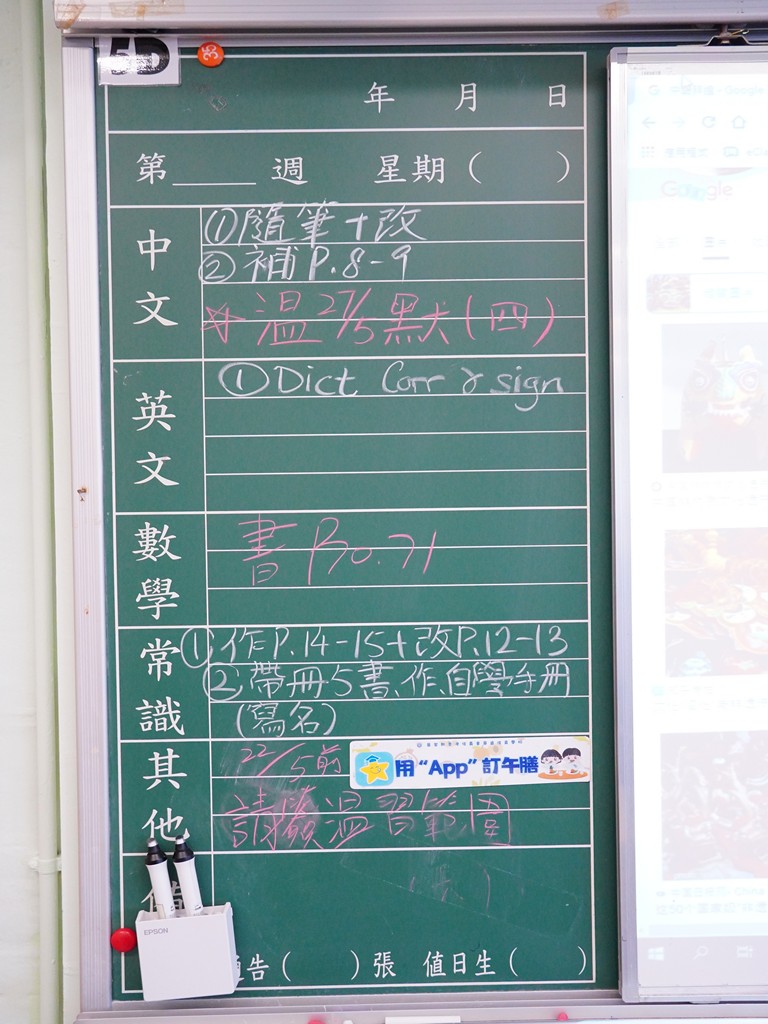 5D
35
年 月 日
第____週 星期( )
中文
①隨筆+改
②補P.8-9
☆溫27/5默(四)
英文
①Dict Corr & sign
數學
書P.70.71
常識
①作P.14-15+改P.12-13
②帶冊5書、作、自學手冊
(寫名)
其他
22/5前
用“App”訂午膳
請簽溫習範圍
EPSON
告( )張 值日生( )
Google
Google